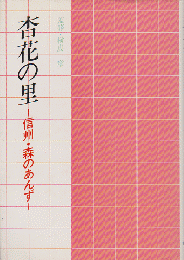 杏花の里
―信州・森のあんず―